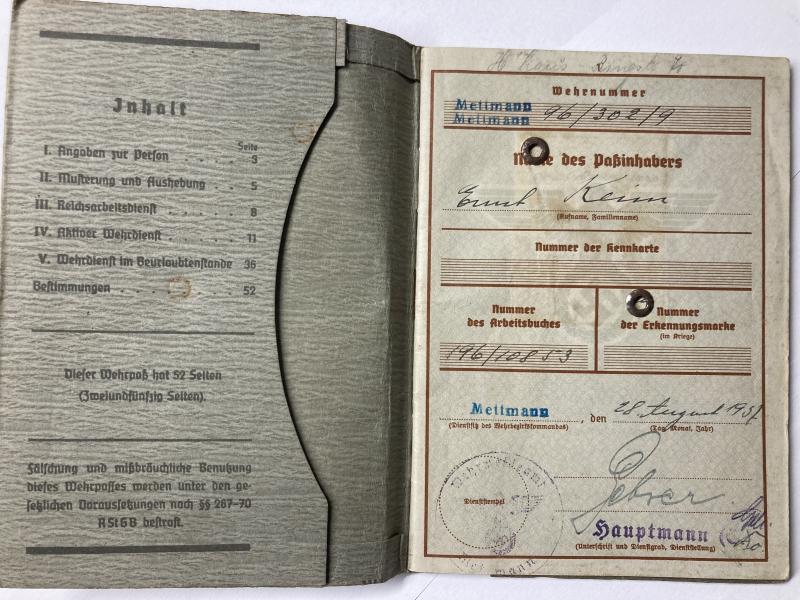 Inhalt
Seite
I. Angaben zur Person . . . . 3
II. Musterung und Aushebung . . 5
III. Reichsarbeitsdienst . . . . . 8
IV. Aktiver Wehrdienst . . . . . 11
V. Wehrdienst im Beurlaubtenstande 36
Bestimmungen . . . . . . 52
Dieser Wehrpaß hat 52 Seiten
(Zweiundfünfzig Seiten).
Fälschung und mißbräuchliche Benutzung
dieses Wehrpasses werden unter den ge-
setzlichen Voraussetzungen nach §§ 267-70
RStGB bestraft.
Wehrnummer
Mettmann
Mettmann 96/302/9
des Paßinhabers
Ernst Keim
(Rufname, Familienname)
Nummer der Kennkarte
Nummer
des Arbeitsbuches
Nummer
der Erkennungsmarke
(im Kriege)
196/10853
Mettmann, den 28. August
(Dienstsitz des Wehrbezirkskommandos) (Tag, Monat, Jahr)
Dienststempel
Hauptmann
(Unterschrift und Dienstgrad, Dienststellung)